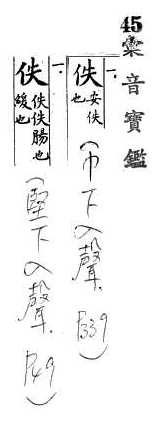 45
彙音寶鑑
一.
佚 安佚也
(巾下入聲 P339)
一.
佚 佚佚腸也緩也
(堅下入聲 P49)